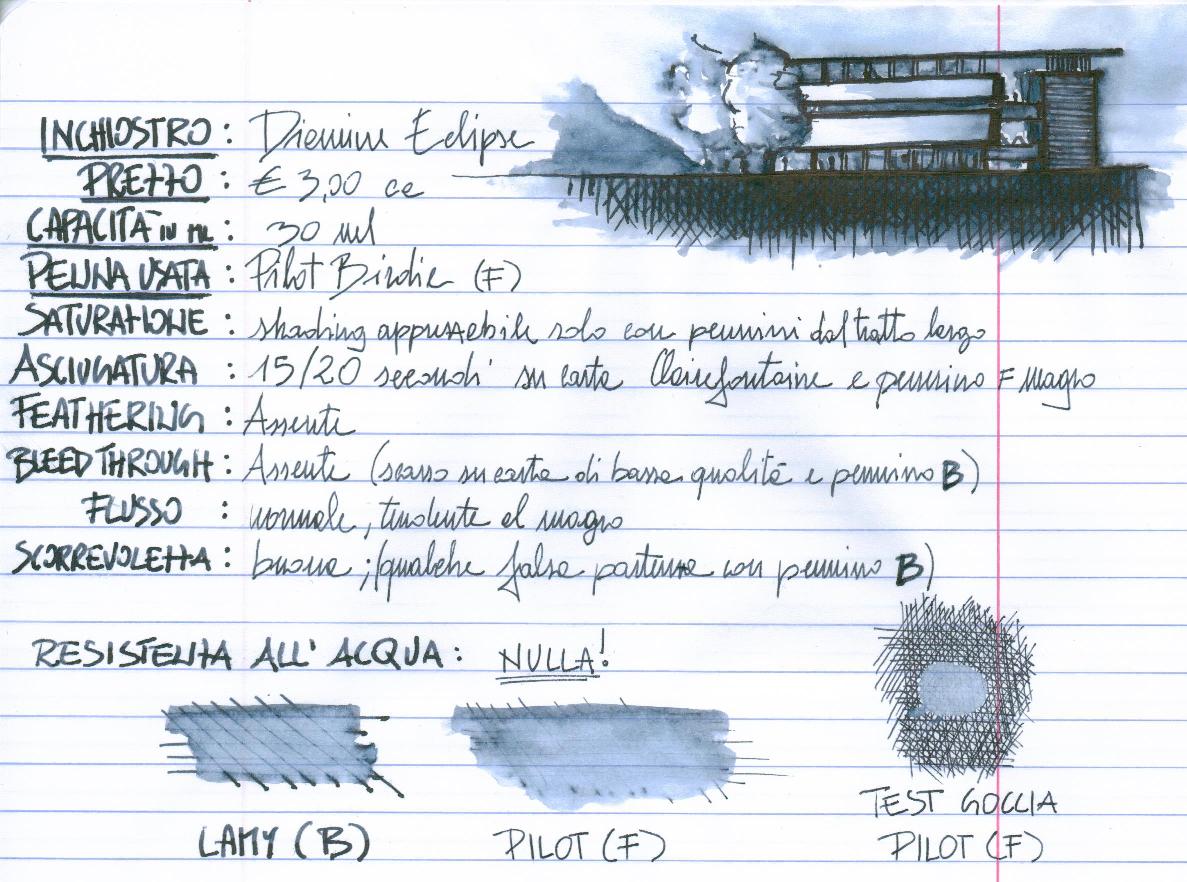 INCHIOSTRO: Diamine Eclipse
PREZZO: € 3,00 ca
CAPACITÀ in ml: 30 ml
PENNA USATA: Pilot Birdie (F)
SATURAZIONE: shading apprezzabile solo con pennini dal tratto largo
ASCIUGATURA: 15/20 secondi su carta Clairefontaine e pennino F magro
FEATHERING: Assente
BLEEDTHROUGH: Assente (scarso su carta di bassa qualità e pennino B)
FLUSSO: normale, tendente al magro
SCORREVOLEZZA: buona; (qualche falsa partenza con pennino B)
RESISTENZA ALL'ACQUA: NULLA!
TEST GOCCIA
LAMY (B) PILOT (F) PILOT (F)